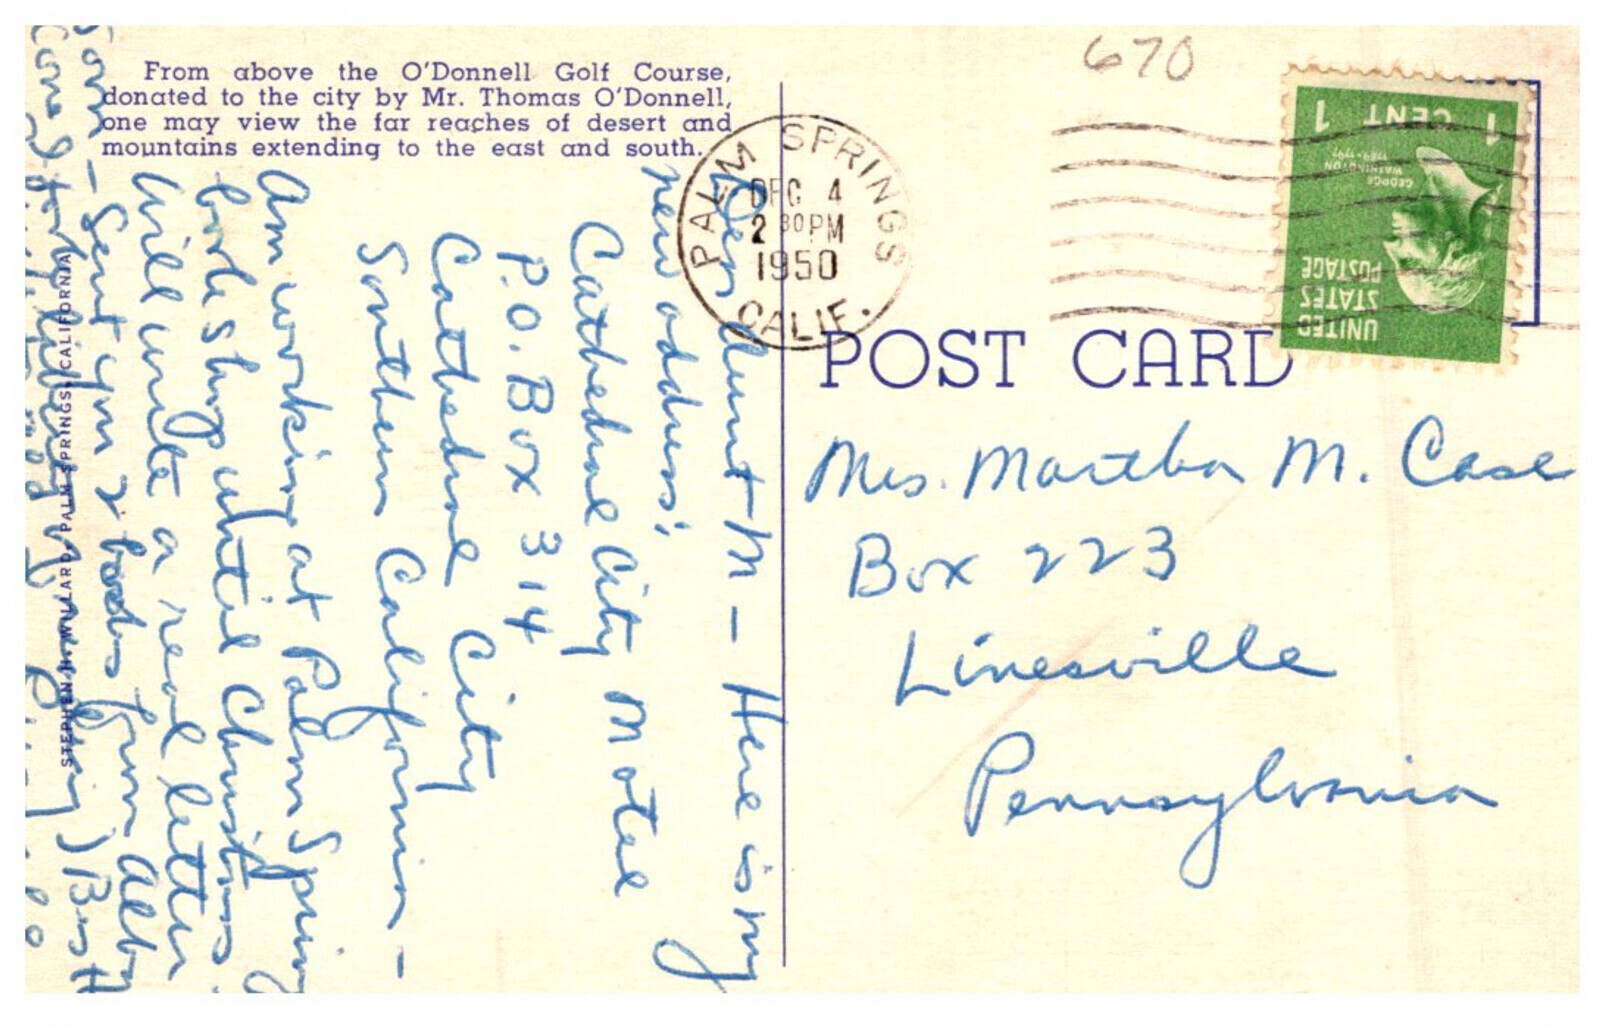 From above the O'Donnell Golf Course,
donated to the city by Mr. Thomas O'Donnell,
one may view the far reaches of desert and
mountains extending to the east and south.
STEPHEN H. WILLARD, PALM SPRINGS, CALIFORNIA
Dear Aunt M — Here is my
new address:
Cathedral City Motel
P.O. Box 314
Cathedral City
Southern California —
Am working at Palm Springs
book shop until Christmas
Will write a real letter
soon — Sent you 2 books from
670
PALM SPRINGS
DEC 4
2 30 PM
1950
CALIF.
1 CENT 1
GEORGE
WASHINGTON
1789-1797
UNITED
STATES
POSTAGE
POST CARD
Mrs. Martha M. Case
Box 223
Linesville
Pennsylvania